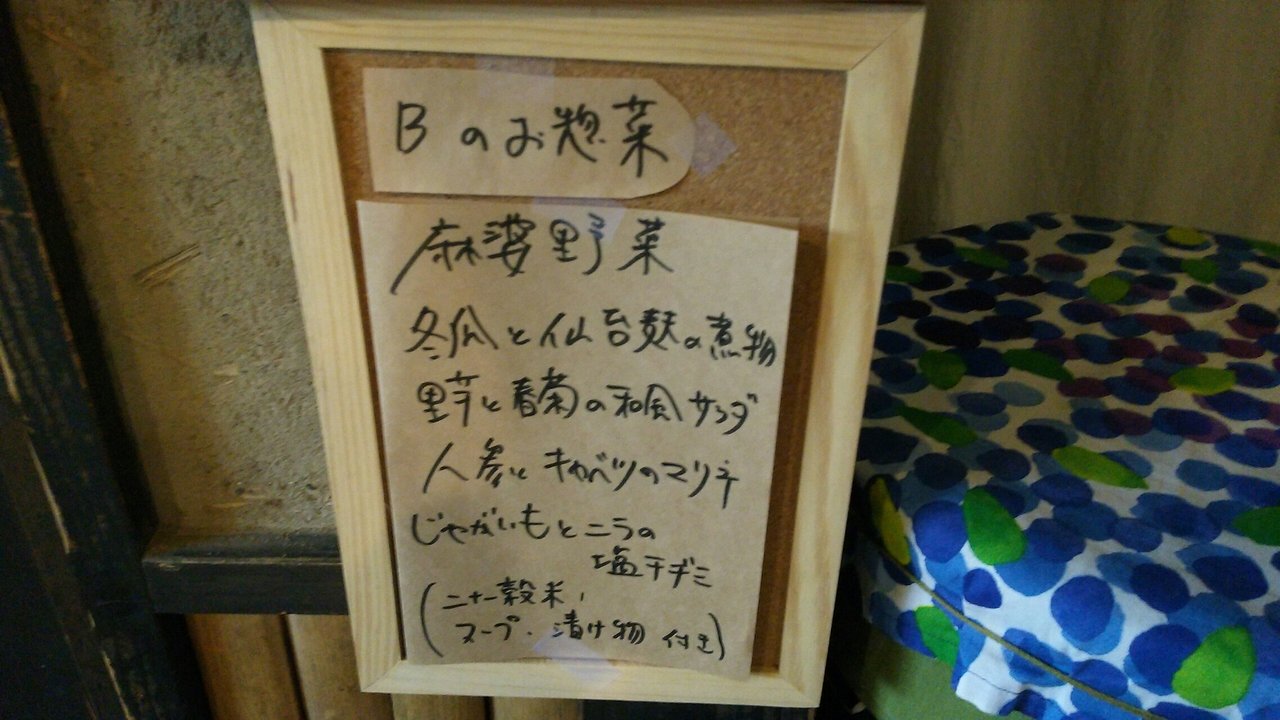 Bのお惣菜
麻婆野菜
冬瓜と仙台麩の煮物
里芋と春菊の和風サラダ
人参とキャベツのマリネ
じゃがいもとニラの
塩チヂミ
(二十一穀米,
スープ・漬け物 付き)